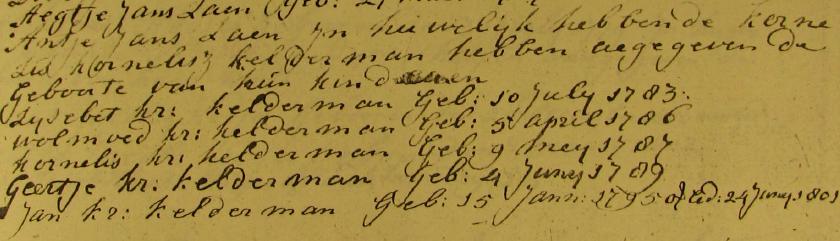 Aegtje Jans Laen Geb: 2
Antje Jans Laen in huiwelijk hebbende korne
Lis kornelisz kelderman hebben aegegeven de
Geboorte van hün kinderen
Lysebet kr: kelderman Geb: 10 July 1783:
wolmoed kr: kelderman Geb: 5 april 1786
kornelis kr: kelderman Geb: 9 mey 1787
Geertje kr: kelderman Geb: 4 Juny 1789
Jan kr: kelderman Geb: 15 Jann: 1795 23 24 Juny 1801